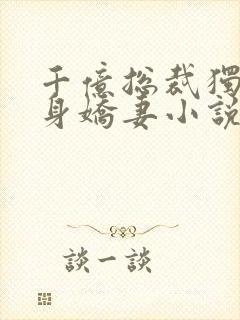 千億總裁獨
身嬌妻小說
談一談